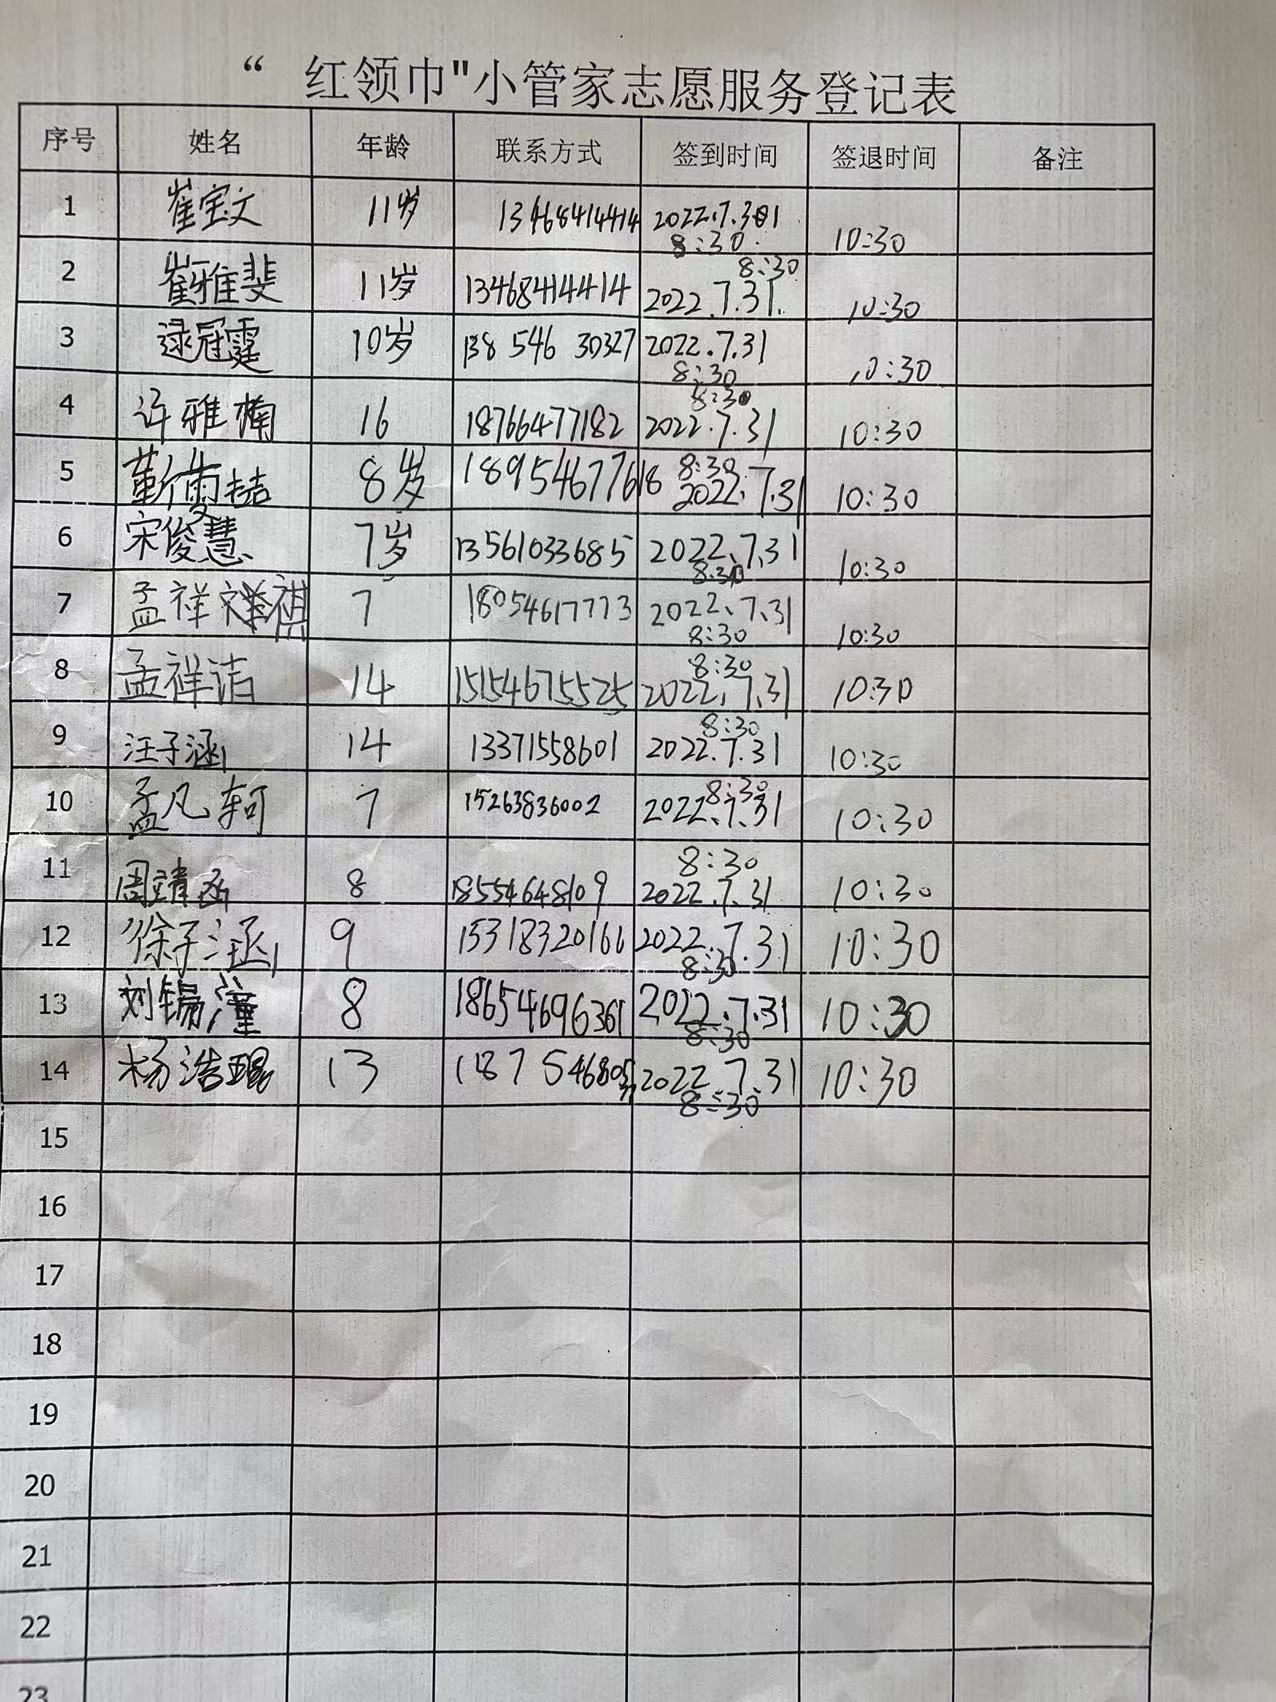 “ 红领巾"小管家志愿服务登记表
序号 姓名 年龄 联系方式 签到时间 签退时间 备注
1 崔宝文 11岁 13468414414 2022.7.31 8:30 10:30
2 崔雅斐 11岁 13468414414 8:30 2022.7.31. 10:30
3 逯冠霆 10岁 138 546 30327 2022.7.31 8:30 10:30
4 许雅楠 16 18766477182 8:30 2022.7.31 10:30
5 8岁 18954677618 8:30 2022.7.31 10:30
6 宋俊慧 7岁 13561033685 2022.7.31 8:30 10:30
7 孟祥祺 7 18054617773 2022.7.31 8:30 10:30
8 孟祥洁 14 15154675525 8:30 2022.7.31 10:30
9 汪子涵 14 13371558601 8:30 2022.7.31 10:30
10 孟凡轲 7 15263836002 8:30 2022.7.31 10:30
11 周靖函 8 18554648109 8:30 2022.7.31 10:30
12 徐子涵 9 15318320166 2022.7.31 8:30 10:30
13 刘锡潼 8 18654696361 2022.7.31 8:30 10:30
14 杨浩琨 13 2022.7.31 8:30 10:30
15
16
17
18
19
20
21
22
23